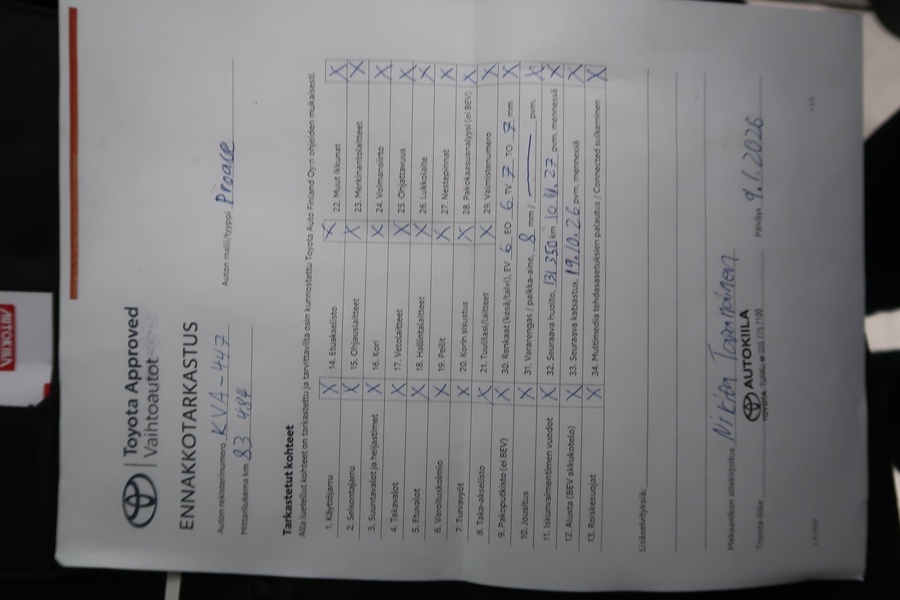 Toyota Approved
Vaihtoautot
ENNAKKOTARKASTUS
Auton rekisterinumero KVA-447 Auton malli/tyyppi Proace
Mittarilukema km 83 484
Tarkastetut kohteet
Alla luetellut kohteet on tarkastettu ja tarvittavilta osin kunnostettu Toyota Auto Finland Oy:n ohjeiden mukaisesti.
1. Käyttöjarru X 14. Etuakselisto X 22. Muut ikkunat X
2. Seisontajarru X 15. Ohjauslaitteet X 23. Merkinantolaitteet X
3. Suuntavalot ja heijastimet X 16. Kori X 24. Voimansiirto X
4. Takavalot X 17. Vetolaitteet X 25. Ohjattavuus X
5. Etuvalot X 18. Hallintalaitteet X 26. Lukkolaite X
6. Varoituskolmio X 19. Peilit X 27. Nestepinnat X
7. Turvavyöt X 20. Korin sisustus X 28. Pakokaasuanalyysi (ei BEV) X
8. Taka-akselisto X 21. Tuulilasi/laitteet X 29. Valmistenumero X
9. Pakoputkisto (ei BEV) X 30. Renkaat (kesä/talvi), EV 6 EO 6 TV 7 TO 7 mm X
10. Jousitus X 31. Vararengas / paikka-aine, 8 mm / — pvm. X
11. Iskunvaimentimen vuodot X 32. Seuraava huolto, 131 350 km 10.4.27 pvm. mennessä X
12. Alusta (BEV akkukotelo) X 33. Seuraava katsastus, 19.10.26 pvm. mennessä X
13. Roiskesuojat X 34. Multimedia tehdasasetuksien palautus / Connected sulkeminen X
Lisäselvityksiä:
Mekaanikon allekirjoitus
Toyota-liike AUTOKIILA Päiväys 9.1.2026
TOYOTA TURKU
AUTOKIILA